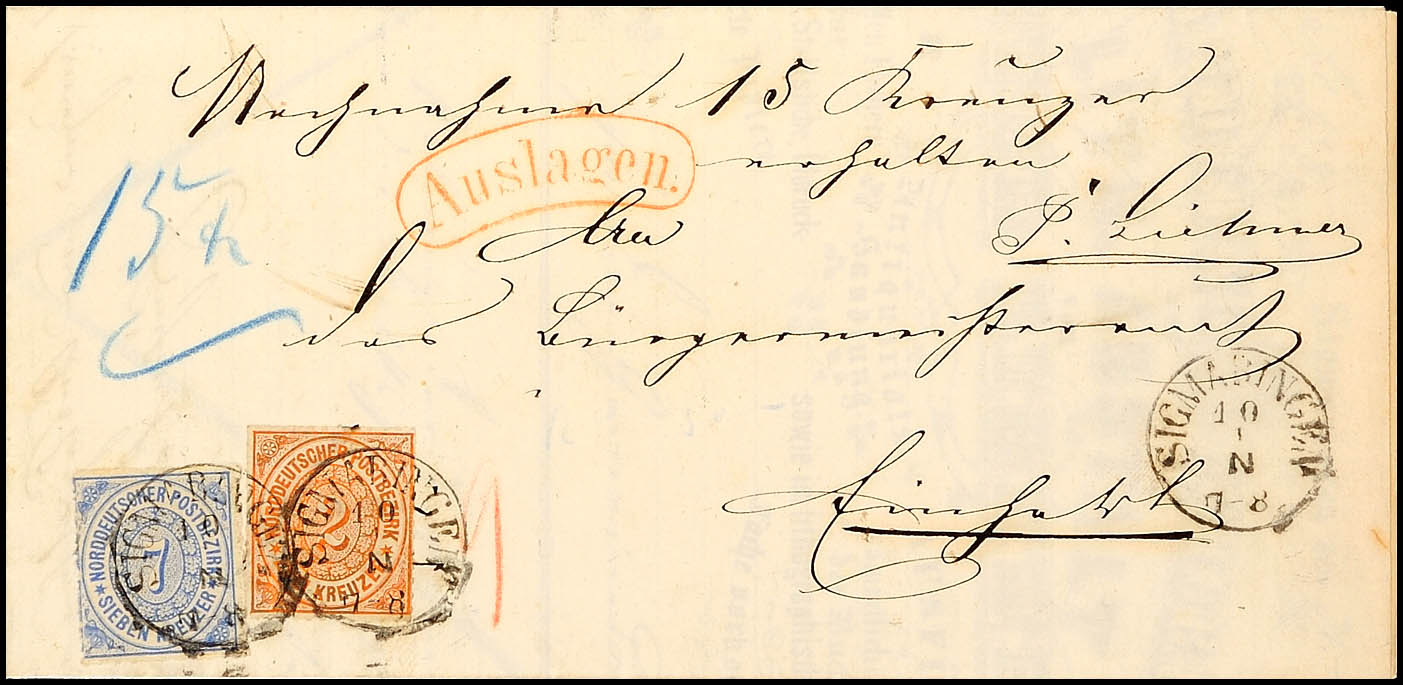 Nachnahme 15 Kreuzer
erhalten
Auslagen.
15 k
An
das Bürgermeisteramt
Einhart
SIGMARINGEN
10
1
N
7-8
NORDDEUTSCHER POSTBEZIRK
7
SIEBEN KREUZER
SIGMARINGEN
NORDDEUTSCHER POSTBEZIRK
2
KREUZER
SIGMARINGEN
10
N
7-8